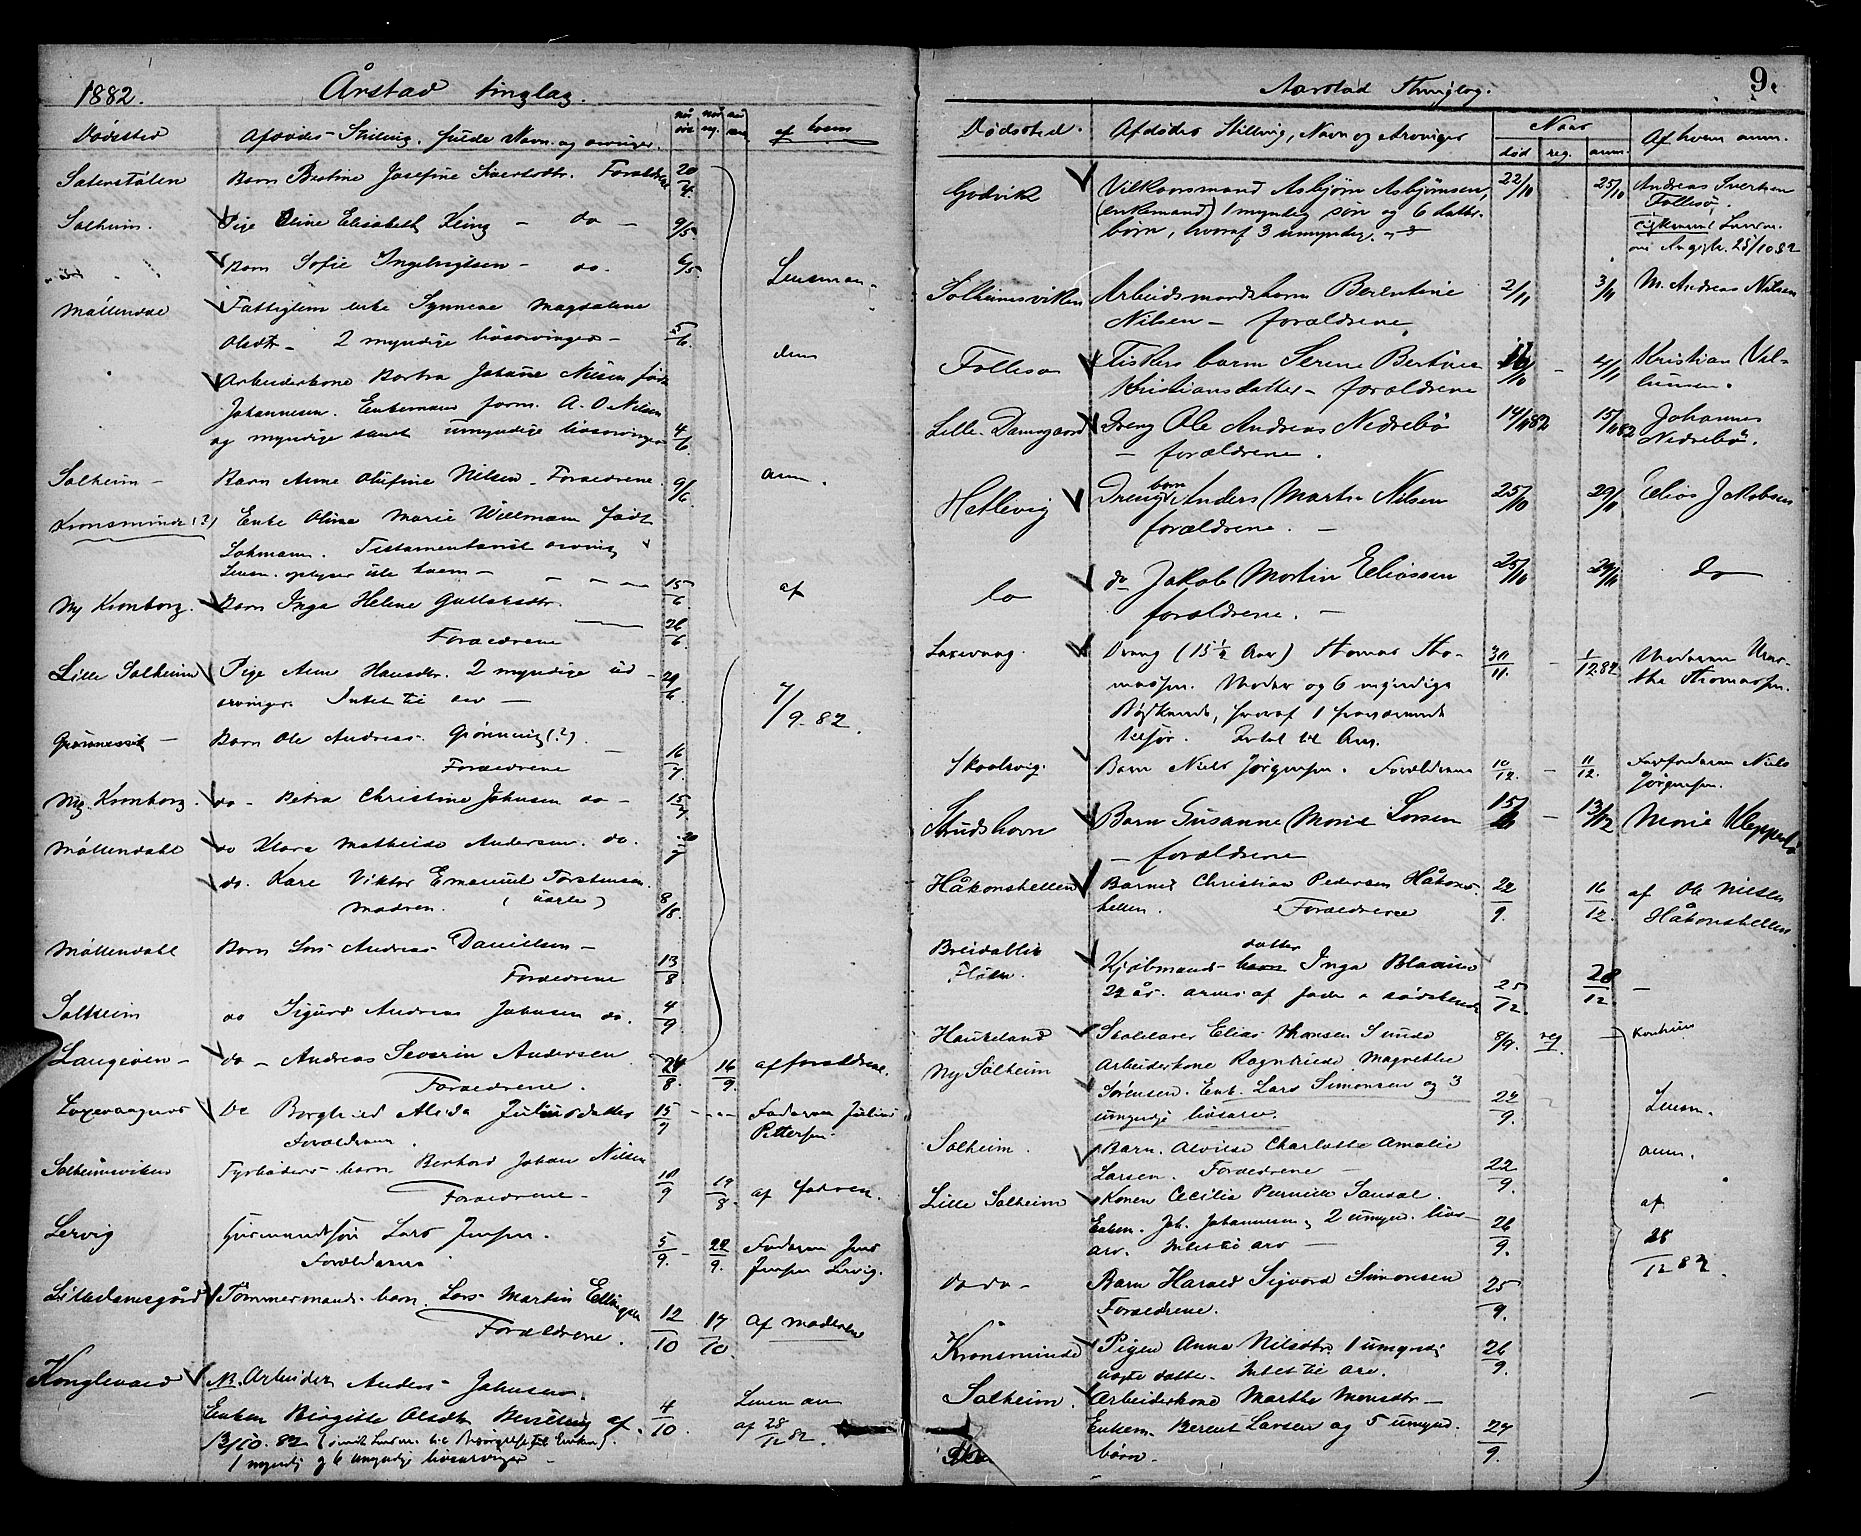 1882. Årstad tinglag.
Dødssted Afdødes Stilling, fulde Navn og arvinger. af hvem
Barn Bertine Josefine Forældrene 20/4
Solheim. Pige Oline Elisabeth Kling - do - 9/5
Barn Sofie Ingebrigtsen - do. 6/5 Lensman-
Möllendal Fattiglem enke Synneve Magdalene
Olsdtr - 2 myndige livsarvinger - 5/6
Arbeiderkone Johanne Nilsen født den
Johannesen. Enkemand form. A. O. Nilsen
og myndige samt umyndige livsarvinger 4/6
Solheim - Barn Anne Olufine Nilsen - Forældrene. 9/6 anm.
Kronsminde (?) Enke Oline Marie Willmann født
Testamentarisk arving
Lensm. oplyser ikke hvem - 15/6
Ny Kronborg. Barn Inga Helene af
Forældrene 26/6
Lille Solheim Pige Ane Hansdtr. 2 myndige ud-
arvinger. Intet til arv - 29/6 7/9. 82.
Barn Ole Andreas Grönning (?).
Forældrene 16/7
Ny Kronborg. do - Petra Christine Johnsen do - 15/7
Möllendahl do Klara Mathilde Andersen. do. 20/7
do. Kare Viktor Emanuel Torstensen.
Madren. (uægte) 8/8
Möllendahl Barn Lars Andreas Danielsen -
Forældrene 13/8
Solheim do Sigurd Andreas Johnsen do. 4/9
do - Andreas Severin Andersen 16/9. af forældrene.
Forældrene. /8.
Laxevaagnes Do Borghild Alida Juliusdatter 15/9 - - - Faderen Julius
Forældrene. Pettersen.
Solheimsviken Fyrbøders barn Johan Nilsen 10/9 19/8. af fadren.
Forældrene -
Lervig Husmandssön Lars Jensen. 5/9. - 22/9. Faderen Jens
Forældrene Jensen Lervig.
Lilledamsgård Tömmermands barn Lars Martin Ellingsen 12/10 17/10. af moderen
Forældrene.
NB. Arbeider Anders Johnsen. 4/10. Lensm anm
Enken Birgitte Olsdtr Bevilling af af 28/12 82.
13/10. 82
1 myndig og 6 umyndige livsarvinger -
Aarstad Thinglag. 9.
Dødssted. Afdødes Stilling, Navn og Arvinger Naar Af hvem anm.
død reg. anm.
Godvik Vilkaarsmand Asbjørn Asbjørnsen, 22/10 25/10 Andreas Sivertsen
(enkemand) 1 myndig søn og 6 datter- Follesø,
børn, hvoraf 3 umyndige. 25/10 82
Solheimsviken Arbeidsmandsbarn Berentine 2/11 3/11 M. Andreas Nilsen
Nilsen - forældrene.
Follesø Fiskers barn Serine Bertine /10 - 4/11 Kristian
Kristiansdatter - forældrene
Lille Damsgaard Dreng Ole Andreas Nedrebö 14/11 82 15/11 82 Johannes
- forældrene. Nedrebö.
Hatlevig Drengebarn Anders Martin Nilsen 25/10 29/11 Elias Jakobsen
forældrene. -
do do Jakob Martin Eliassen 25/10 29/11 do
forældrene. -
Laxevaag. Dreng (15 ½ Aar) Thomas Tho- 30/11. - 1/12. 82 Moderen Mar-
massen. Moder og 6 myndige the Thomassen.
Sødskende, hvoraf 1 fraværende
tilsjøs. Intet til Arv.
Skaalevig. Barn Niels Jørgensen. Forældrene 10/12. - 11/12. Farfaderen Niels
Jørgensen.
Strudshavn Barn Susanne Marie Larsen 15/11 - 13/12 Marie Kleppestø
- forældrene
Håkonshellen Barnet Christian Pedersen Håkons- 22/9. 16/12. af Ole Nilsen
hellen. Forældrene Håkonshellen.
Breidablik Kjøbmands datter Inga Blaauw
22 år. arves af fader & sødskende 25/12 28/12. -
Haukeland Skolelærer Elias Monsen Sunde 8/9. reg.
Ny Solheim Arbeiderkone Magrethe
Sørensen. Enk. Lars Simonsen og 3
umyndige livsarv. 22/9. Lensm.
Solheim. Barn. Alvilde Charlotte Amalie
Larsen. Forældrene - 22/9. anm.
Lille Solheim Konen Cecilia Pernille Sandal. af
Enkem. Joh. Johannesen & 2 umynd. livs-
arv. Intet til arv - 26/9. 28/12 82.
Do do - Barn Harald Sigvard Simonsen 25/9.
Forældrene.
Kronsminde Pigen Anna Nilsdtr 1 umyndig 26/9.
uægte datter. Intet til arv.
Solheim. Arbeiderkone Marthe Monsdtr - -
Enkem. Berent Larsen og 5 umynd. 27/9.
børn.